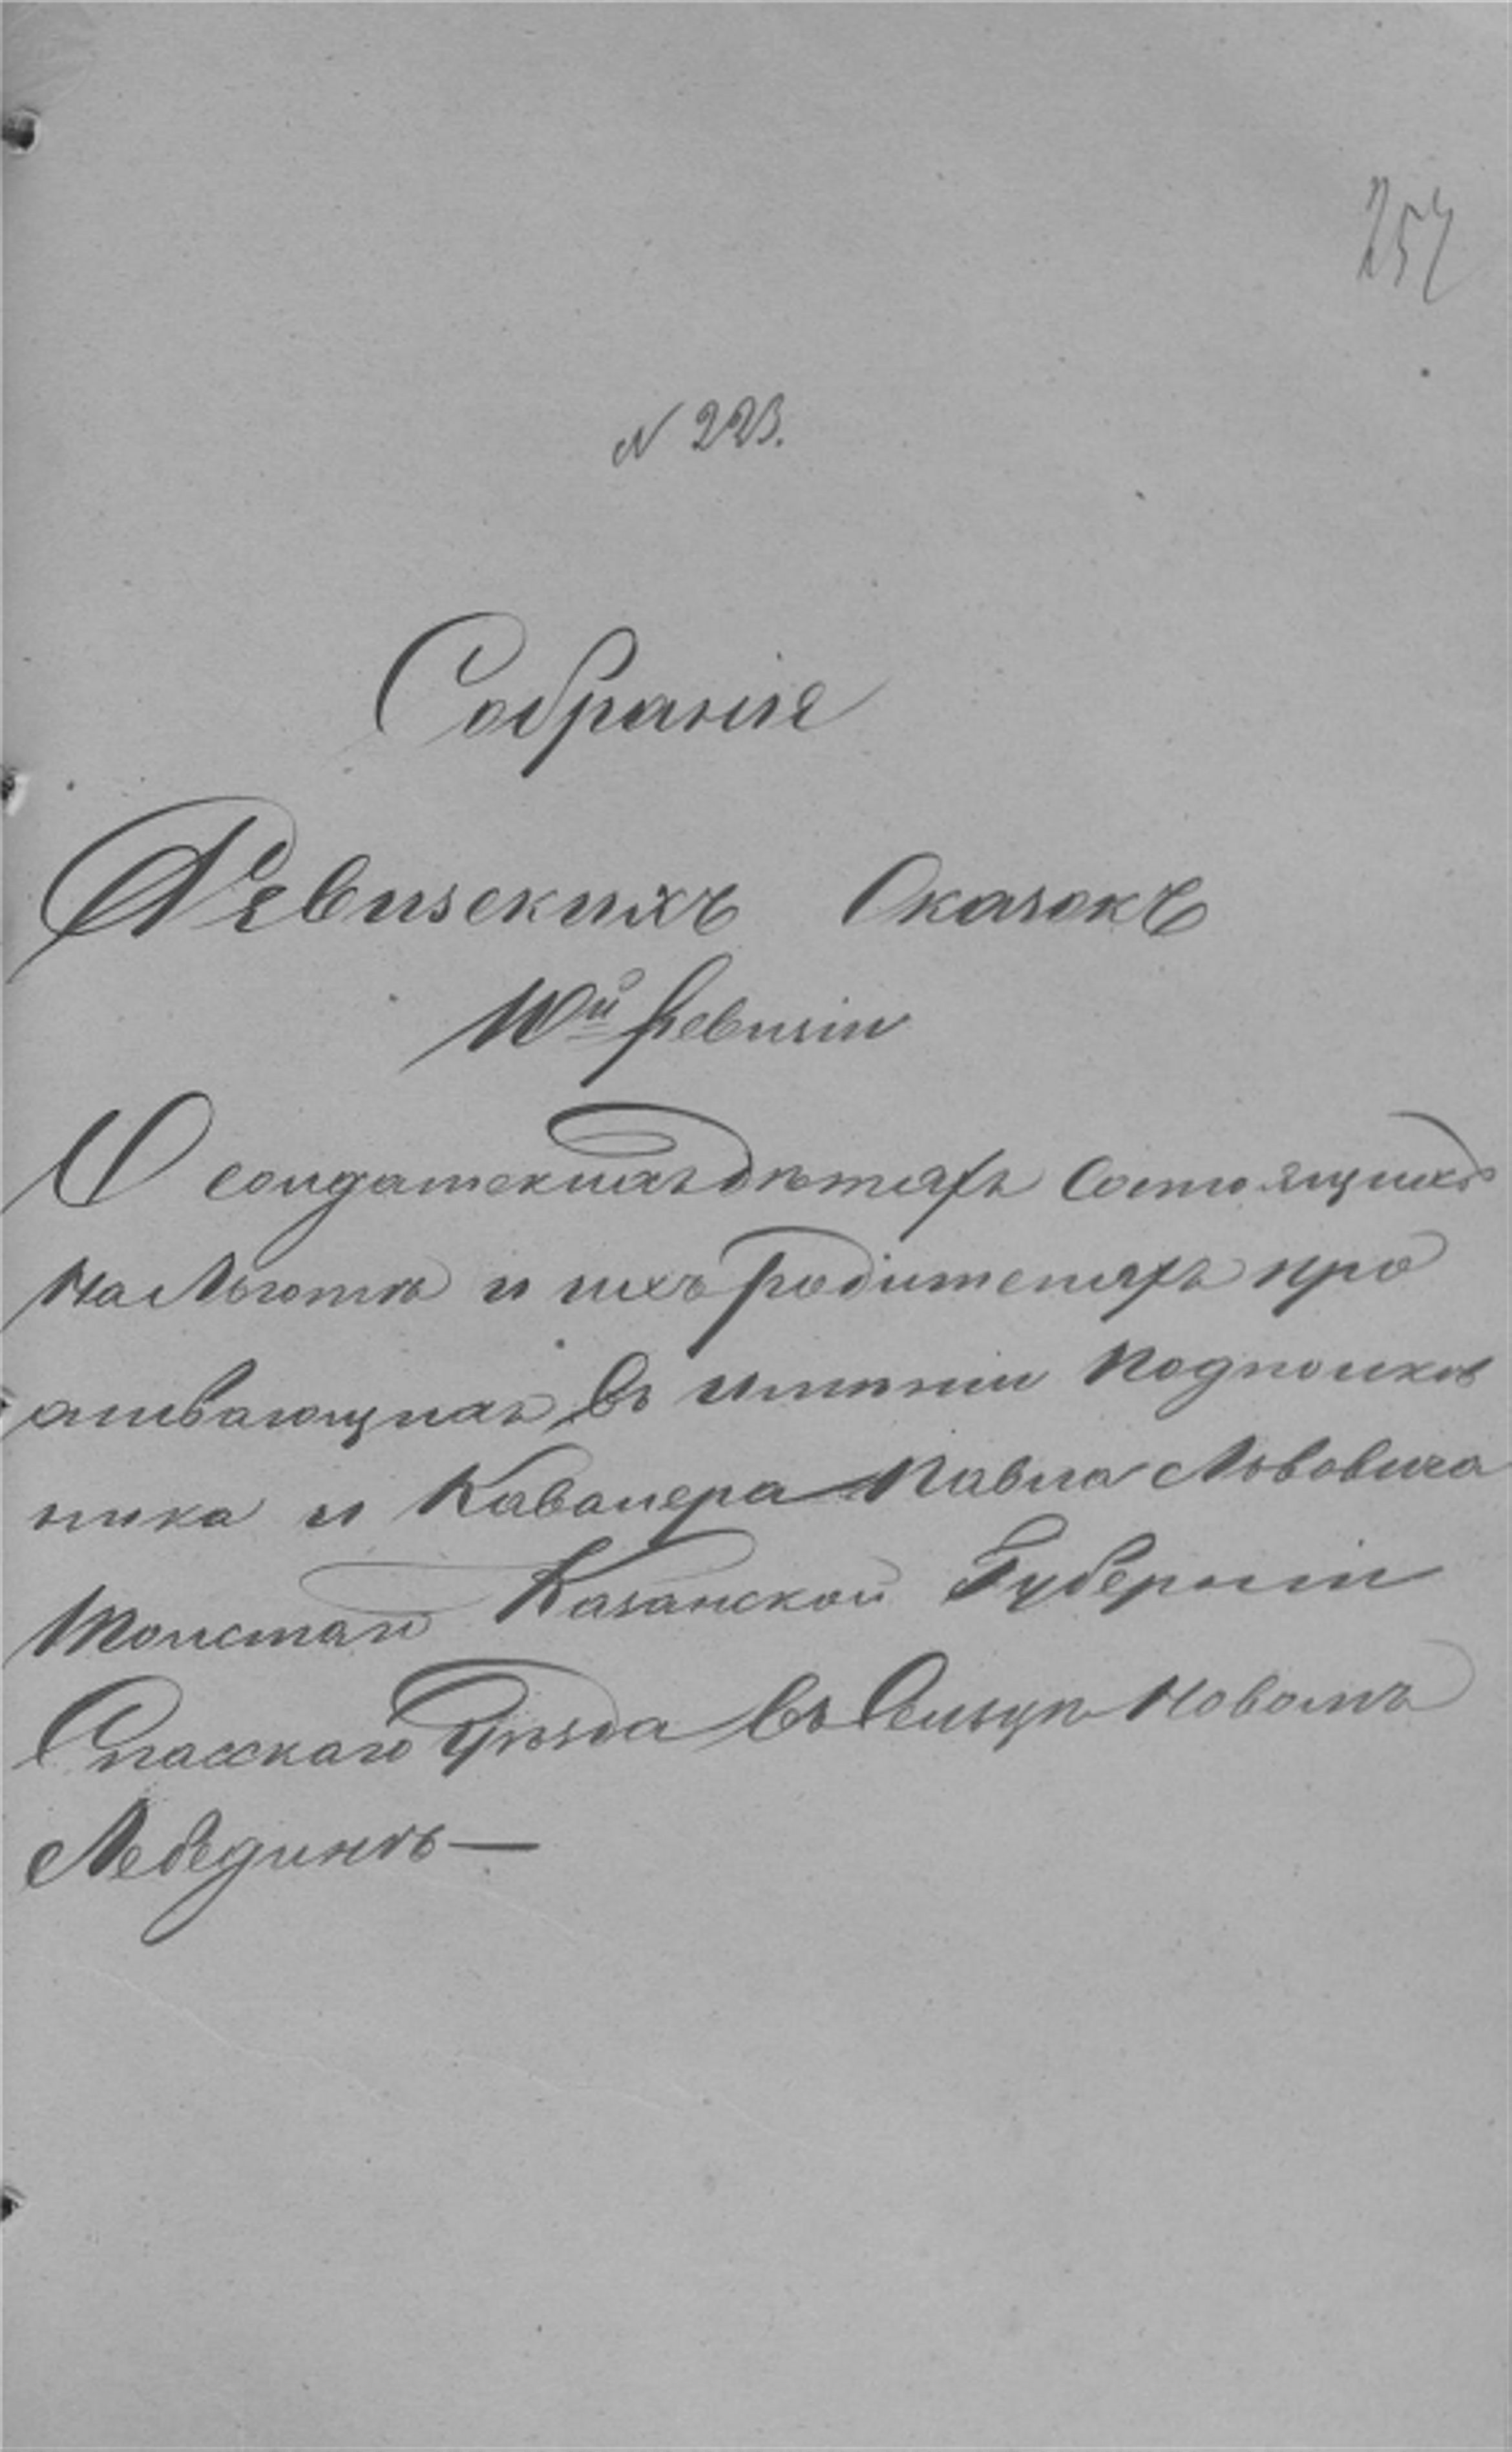 252
N 223.
Собраніе
Ревизскихъ Сказокъ
10й Ревизіи
О солдатскихъ дѣтяхъ Состоящихъ
На Льготѣ и ихъ Родителяхъ про
живающихъ Въ имѣніи Подполков
ника и Кавалера Павла Львовича
Толстай Казанской Губерніи
Спасскаго Уѣзда Въ Сельцѣ Новомъ
Лебединѣ —